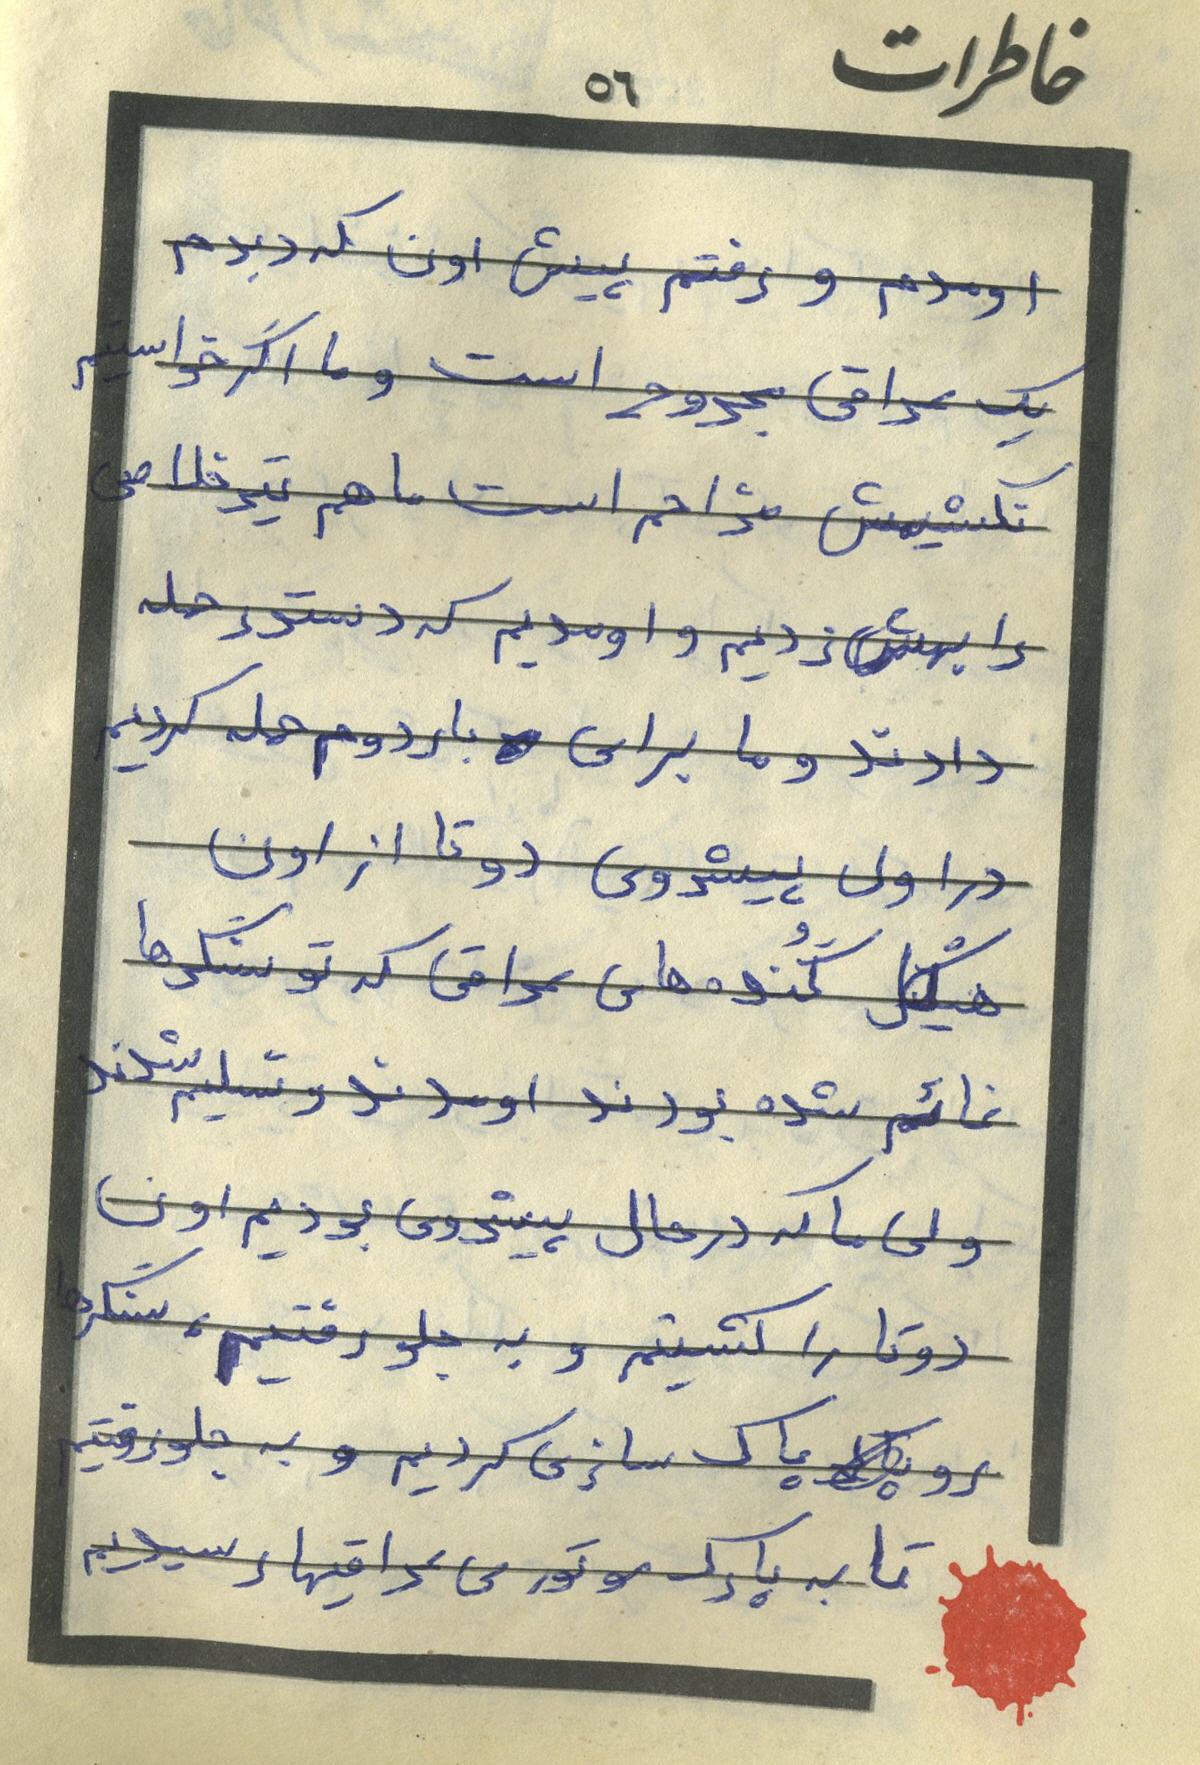 خاطرات
٥٦
اومدم و رفتم پیش اون که دیدم
یک عراقی مجروح است و ما اگر خواستیم
نکشیمش مزاحم است ما هم تیر خلاصی
را بهش زدیم و اومدیم که دستور حمله
دادند و ما برای بار دوم حمله کردیم
در اول پیشروی دو تا از اون
هیکل گُنده های عراقی که تو سنگرها
غائم شده بودند اومدند و تسلیم شدند
ولی ما که در حال پیشروی بودیم اون
دوتا را کشیتم و به جلو رفتیم، سنگرها
رو پاک سازی کردیم و به جلو رفتیم
تا به پارک موتوری عراقیها رسیدیم